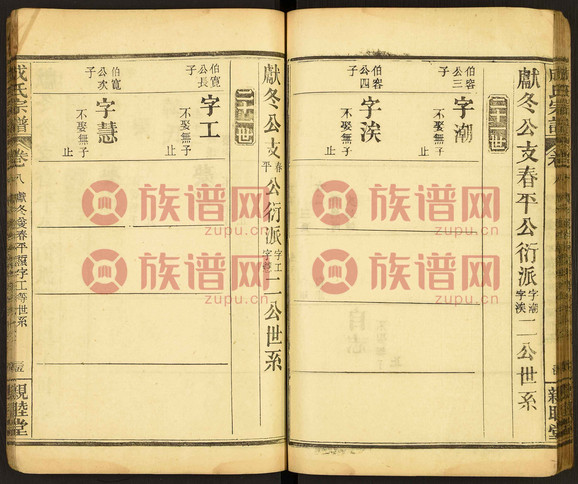 獻冬公支春平公衍派字潮字涘二公世系
二十二世
伯容公三子
字潮
不娶無子
止
伯容公四子
字涘
不娶無子
止
獻冬公支春平公衍派字工字慧二公世系
二十二世
伯寬公長子
字工
不娶無子
止
伯寬公次子
字慧
不娶無子
止
成氏宗譜
卷八
字工等世系
親睦堂
成氏宗譜
親睦堂
族谱网
zupu.cn
族谱网
zupu.cn
族谱网
zupu.cn
族谱网
zupu.cn